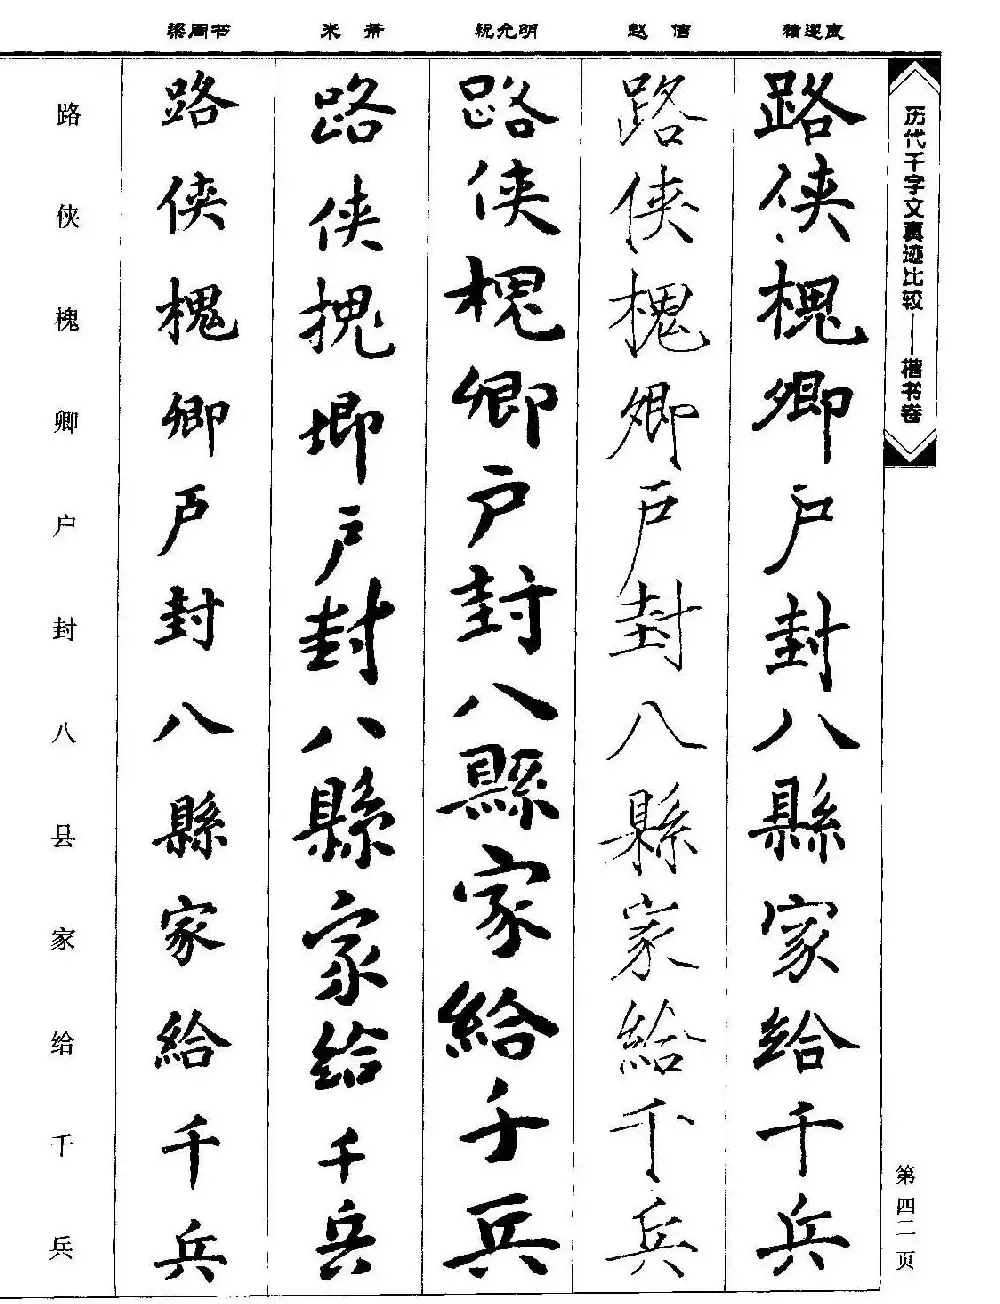 历代千字文真迹比较——楷书卷
第四二页
褚遂良
路侠槐卿户封八縣家給千兵
赵佶
路侠槐卿户封八縣家給千兵
祝允明
路侠槐卿户封八縣家給千兵
米芾
路侠槐卿户封八縣家給千兵
梁同书
路侠槐卿户封八縣家給千兵
路侠槐卿户封八县家给千兵